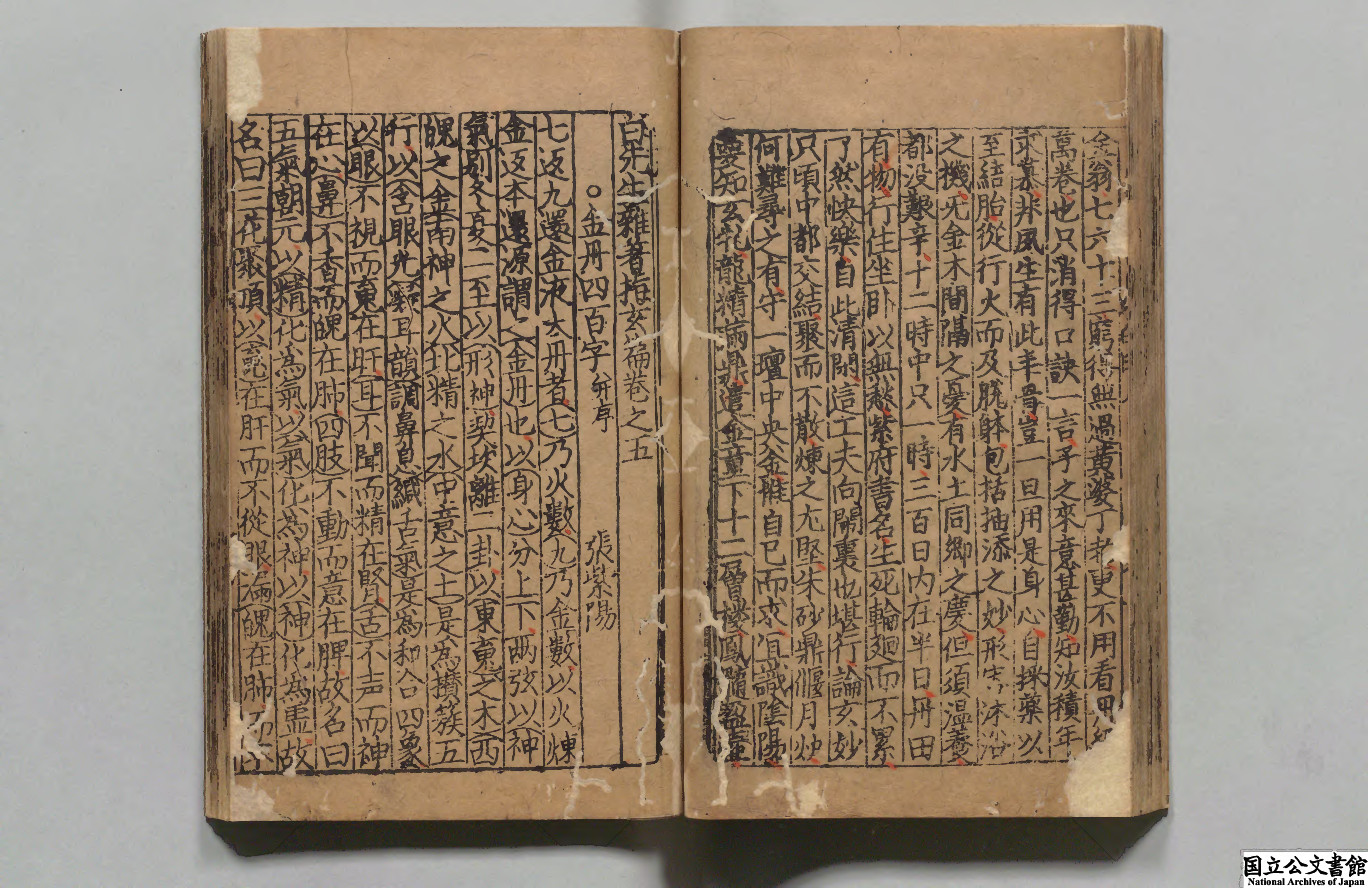 翁七六十三竅得無過黃婆丁老更不用看丹經
萬卷也只消得口訣一言子之來意甚勤知汝積年
求慕非夙生有此半骨豈一旦用是身心自採藥以
至結胎從行火而及脫躰包括抽添之妙形容沐浴
之機旡金木間隔之憂有水土同鄉之慶但須溫養
都没艱辛十二時中只一時三百日内在半日丹田
有物行住坐卧以無愁紫府書名生死輪廻而不累
了然快樂自此清閑這工夫向鬧裏也堪行論玄妙
只頃中都交結聚而不散煉之尤堅朱砂鼎偃月炉
何難尋之有守一壇中央金胎自已而求但識隂陽
要知玄牝龍精滿鼎遣金童下十二層樓鳳髓盈壷
白先生雜著指玄篇卷之五
○金丹四百字并序 張紫陽
七返九還金液大丹者七乃火數九乃金數以火煉
金返本還源謂之金丹也以身心分上下兩弦以神
氣别冬夏二至以形神契坎離二卦以東䰟之木西
魄之金南神之火北精之水中意之土是為攅簇五
行以含眼光凝耳韻調鼻息緘舌氣是為和合四象
以眼不視而䰟在肝耳不聞而精在腎舌不声而神
在心鼻不香而魄在肺四肢不動而意在脾故名曰
五氣朝元以精化為氣以氣化為神以神化為虛故
名曰三花聚頂以䰟在肝而不從眼漏魄在肺而不
国立公文書館
National Archives of Japan